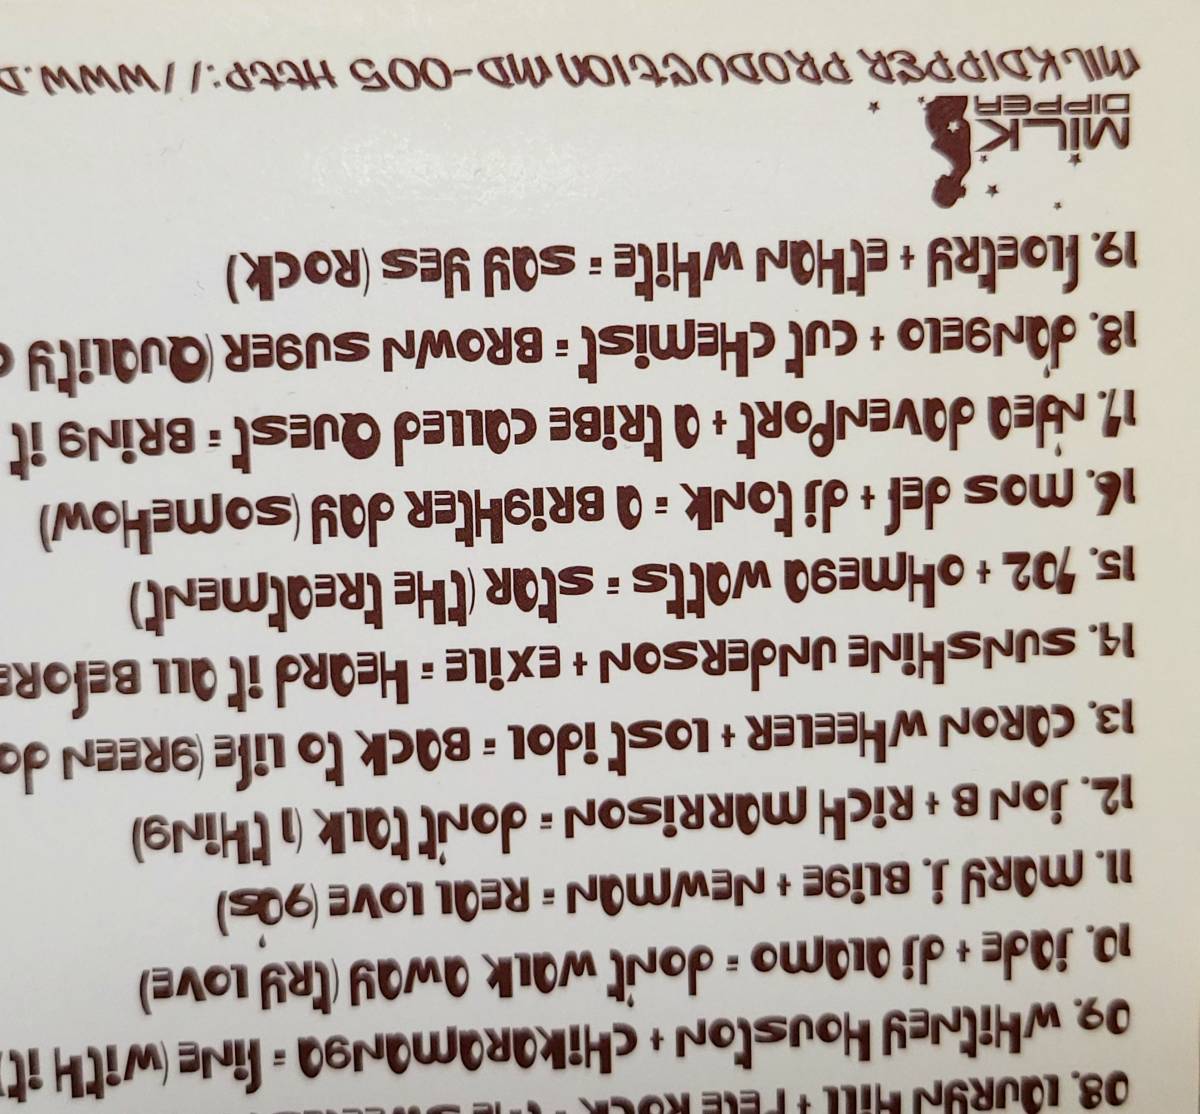 08. LAURYN Hill + PETE ROCK = THE SWEETES
09. WHITNEY HOUSTON + CHIKARAMANGA = FINE (WITH IT)
10. JADE + DJ ALAMO = DON'T WALK AWAY (TRY LOVE)
11. MARY J. BLIGE + NEWMAN = REAL LOVE (90'S)
12. JON B + RICH MORRISON = DON'T TALK (1 THING)
13. CARON WHEELER + LOST IDOL = BACK TO LIFE (GREEN
14. SUNSHINE UNDERSON + EXILE = HEARD IT ALL BEFORE
15. 702 + OHMEGA WATTS = STAR (THE TREATMENT)
16. MOS DEF + DJ TONK = A BRIGHTER DAY (SOMEHOW)
17. N'DEA DAVENPORT + A TRIBE CALLED QUEST = BRING IT
18. D'ANGELO + CUT CHEMIST = BROWN SUGER (QUALITY
19. FLOETRY + ETHAN WHITE = SAY YES (ROCK)
MILK
DIPPER
MILKDIPPER PRODUCTION MD-005 HTTP://WWW.